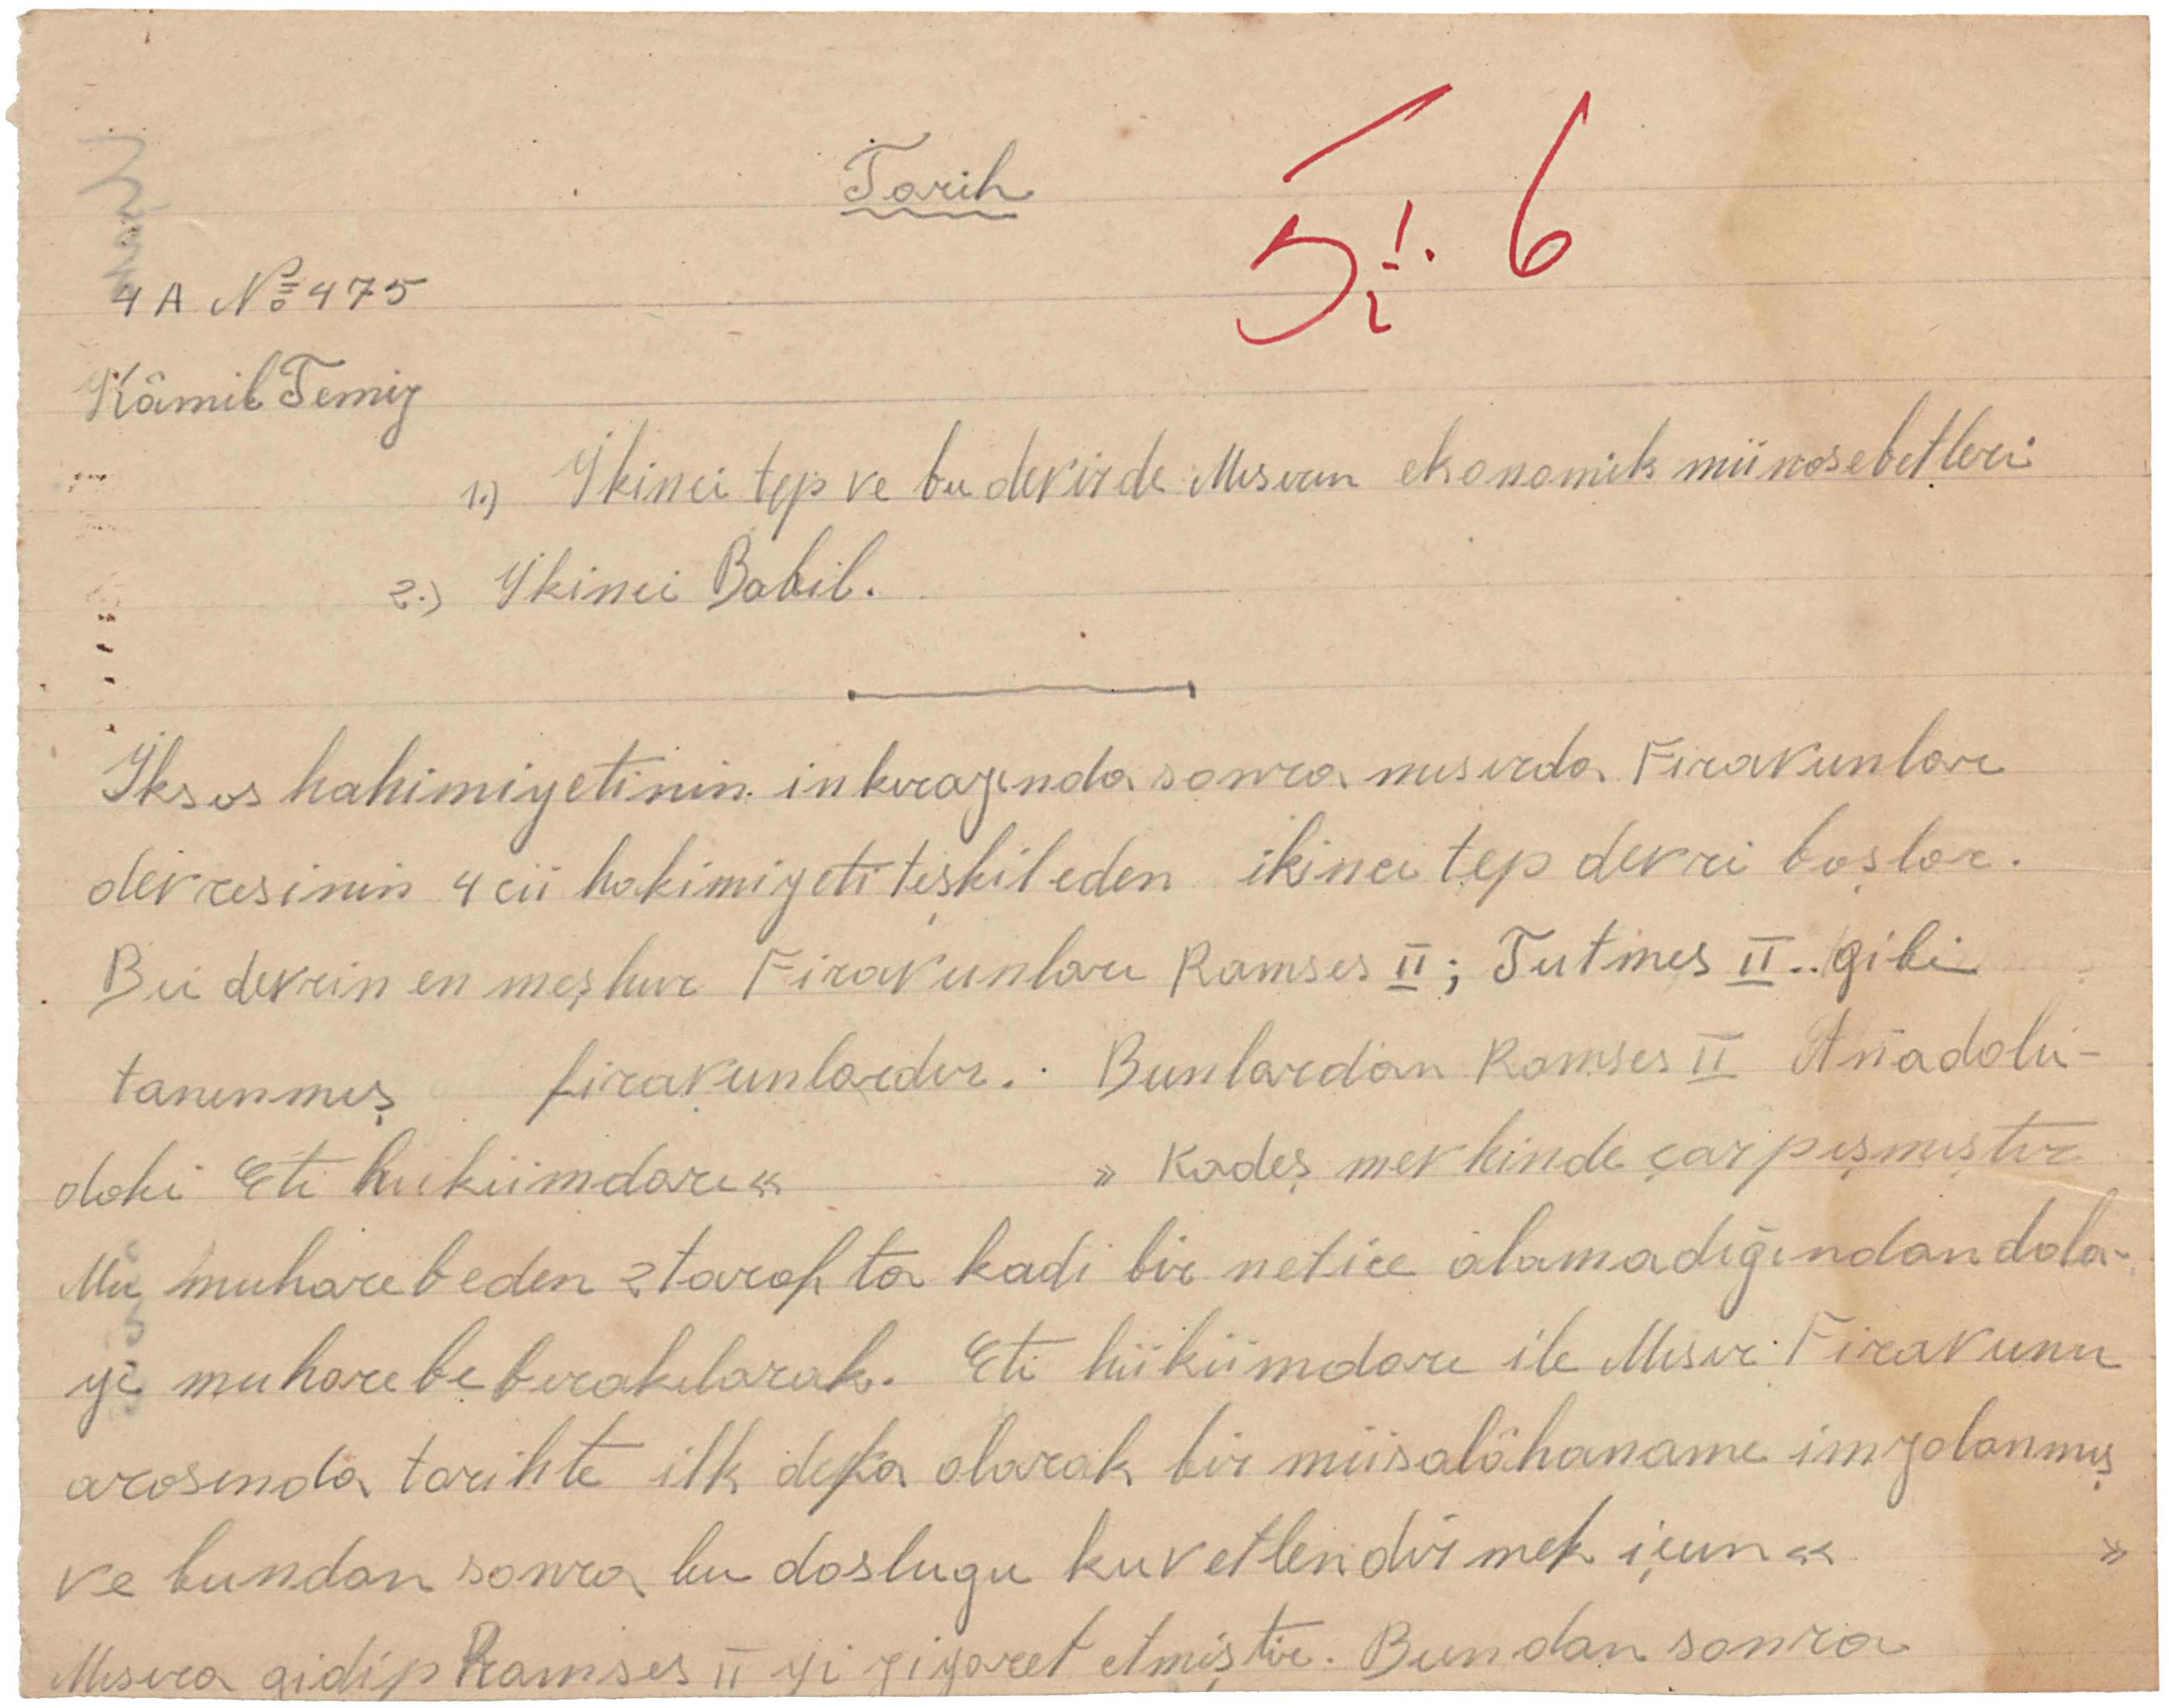 Tarih
5 1/2 6
4 A № 475
Kâmil Temiz
1.) İkinci tep ve bu devirde Mısırın ekonomik münasebetleri
2.) İkinci Babil.
İksos hakimiyetinin inkırazında sonra mısırda Firavunları
devresinin 4 cü hakimiyeti teşkil eden ikinci tep devri başlar.
Bü devrin en meşhur Firavunları Ramses II; Tutmes II.. gibi
tanınmış firavunlardır. Bunlardan Ramses II Anadolu-
daki Eti hükümdarı « » Kadeş mevkinde çarpışmıştır
Mu muharebeden 2 taraf ta kadi bir netice alamadığından dola-
yı muharebe bırakılarak. Eti hükümdarı ile Mısır Firavunu
arasında tarihte ilk defa olarak bir müsalâhaname imzalanmış
ve bundan sonra bu doslugu kuvetlendirmek içun « »
Mısıra gidip Ramses II yi ziyaret etmiştir. Bundan sonra